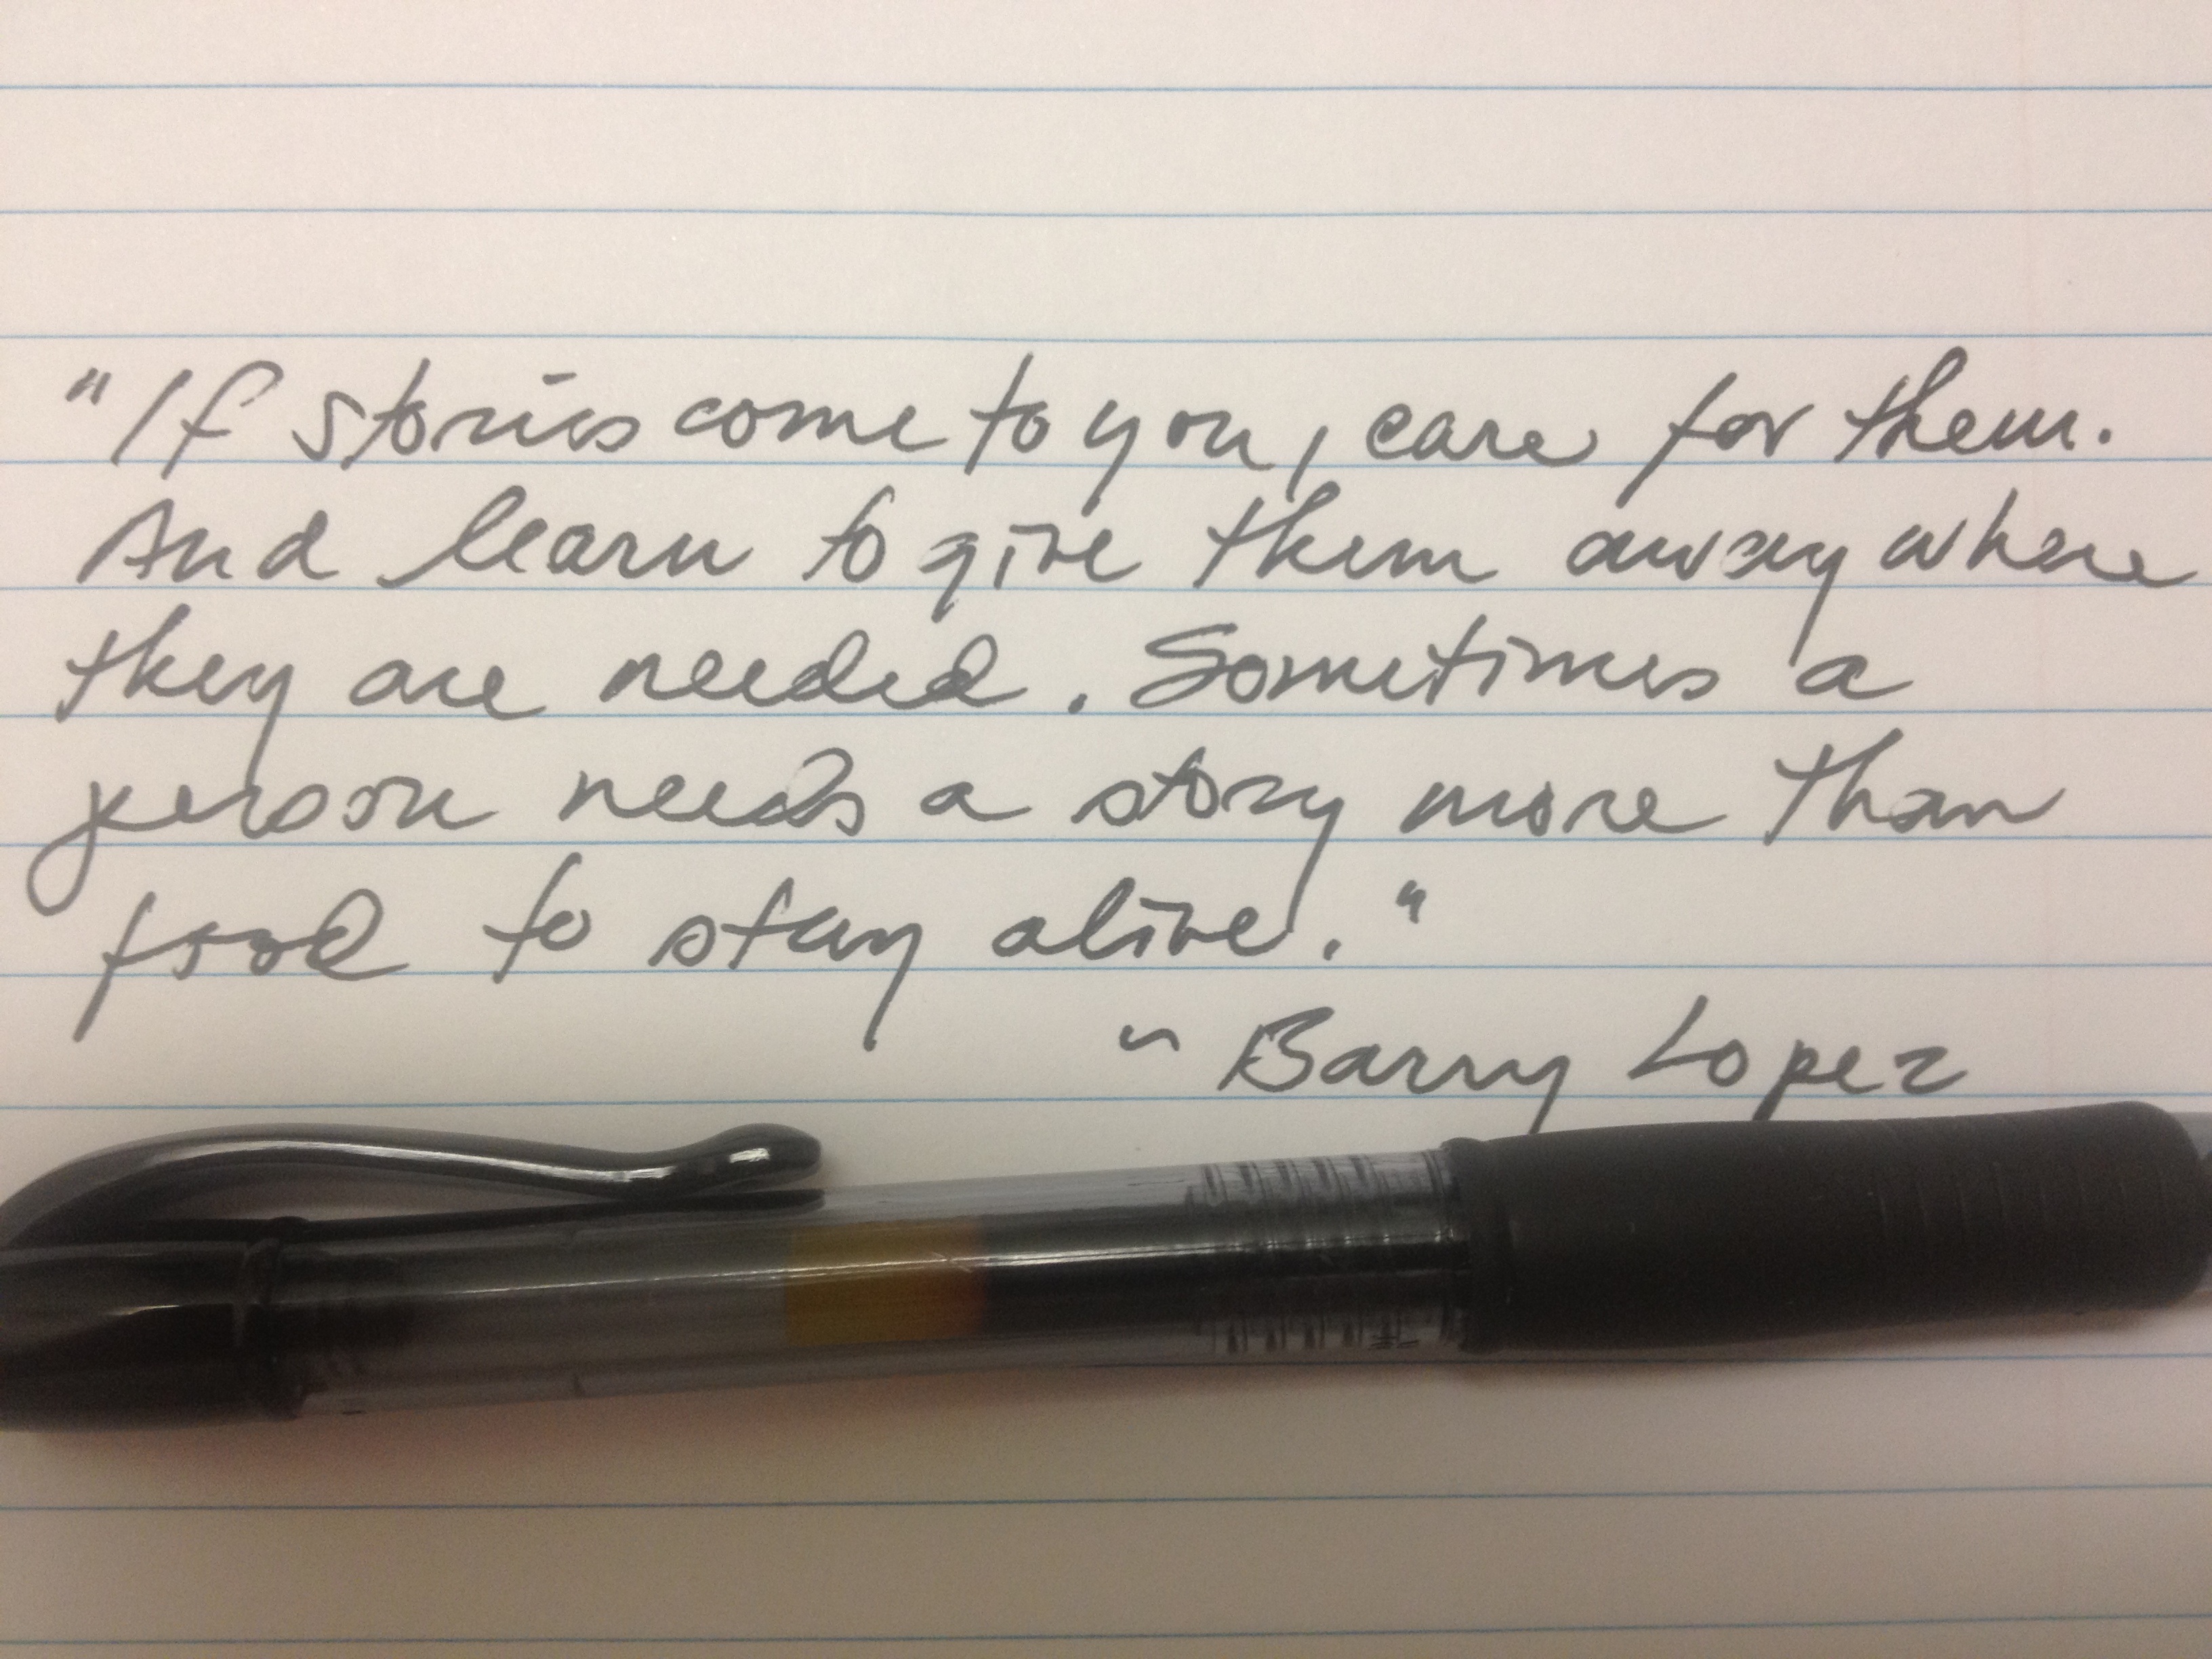 "If stories come to you, care for them.
And learn to give them away where
they are needed. Sometimes a
person needs a story more than
food to stay alive."
~ Barry Lopez